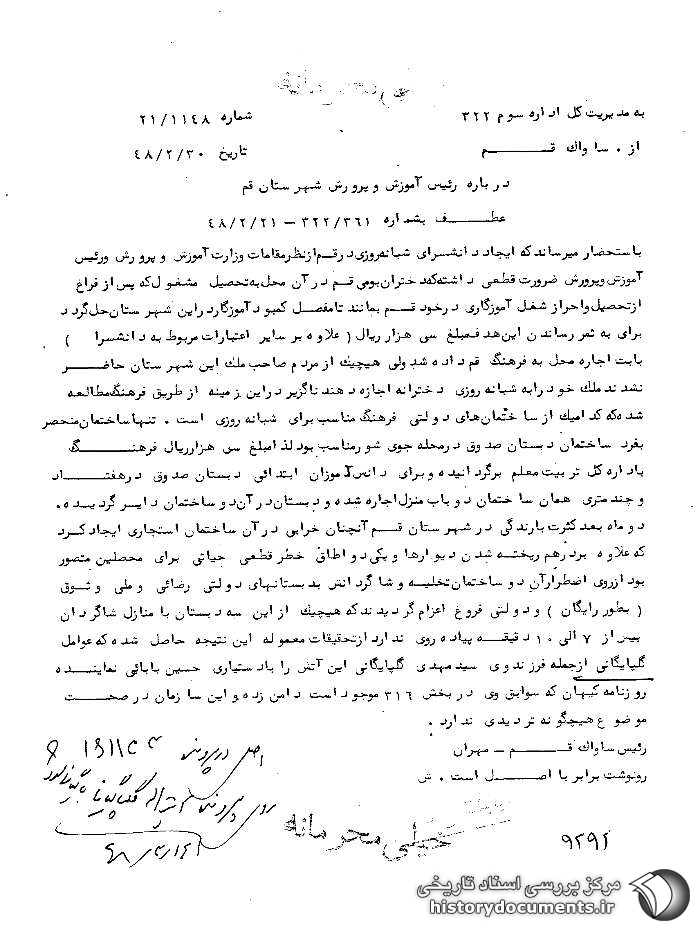 به مدیریت کل اداره سوم ۳۲۲
شماره ۲۱/۱۱۴۸
از : ساواک قم
تاریخ ۴۸/۲/۳۰
درباره رئیس آموزش و پرورش شهرستان قم
عطف بشماره ۳۲۲/۳۶۱ – ۴۸/۲/۲۱
باستحضار میرساند که ایجاد دانشسرای شبانه روزی در قم از نظر مقامات وزارت آموزش و پرورش و رئیس
آموزش و پرورش ضرورت قطعی داشته که دختران بومی قم در آن محل به تحصیل مشغول که پس از فراغ
از تحصیل و احراز شغل آموزگاری در خود قم بمانند تا مفصل کمبود آموزگار در این شهرستان حل گردد
برای به ثمر رساندن این هدف مبلغ سی هزار ریال ( علاوه بر سایر اعتبارات مربوط به دانشسرا )
بابت اجاره محل به فرهنگ قم داده شد ولی هیچیک از مردم صاحب ملک این شهرستان حاضر
نشدند ملک خود را به شبانه روزی دخترانه اجازه دهند ناگزیر در این زمینه از طریق فرهنگ مطالعه
شده که کدامیک از ساختمان‌های دولتی فرهنگ مناسب برای شبانه روزی است . تنها ساختمان منحصر
بفرد ساختمان دبستان صدوق در محله جوی شور مناسب بود لذا مبلغ سی هزار ریال فرهنگ
باداره کل تربیت معلم برگردانیده و برای دانش آموزان ابتدائی دبستان صدوق در هفتاد
و چند متری همان ساختمان دو باب منزل اجاره شده و دبستان در آن دو ساختمان دایر گردیده .
دو ماه بعد کثرت بارندگی در شهرستان قم آنچنان خرابی در آن ساختمان استجاری ایجاد کرد
که علاوه بر درهم ریخته شدن دیوارها و یکی دو اطاق خطر قطعی حیاتی برای محصلین متصور
بود از روی اضطرار آن دو ساختمان تخلیه و شاگردانش بدبستانهای دولتی رضائی و ملی وثوق
( بطور رایگان ) و دولتی فروغ اعزام گردیدند که هیچیک از این سه دبستان با منازل شاگردان
بیش از ۷ الی ۱۰ دقیقه پیاده روی ندارد از تحقیقات معموله این نتیجه حاصل شده که عوامل
گلپایگانی از جمله فرزند وی سید مهدی گلپایگانی این آتش را بادستیاری حسین بابائی نماینده
روزنامه کیهان که سوابق وی در بخش ۳۱۶ موجود است دامن زده و این سازمان در صحت
موضوع هیچگونه تردیدی ندارد .
رئیس ساواک قم – مهران
رونوشت برابر با اصل است . ش
اصل در پرونده
خیلی محرمانه
۹۲۹۲
مرکز بررسی اسناد تاریخی
historydocuments.ir